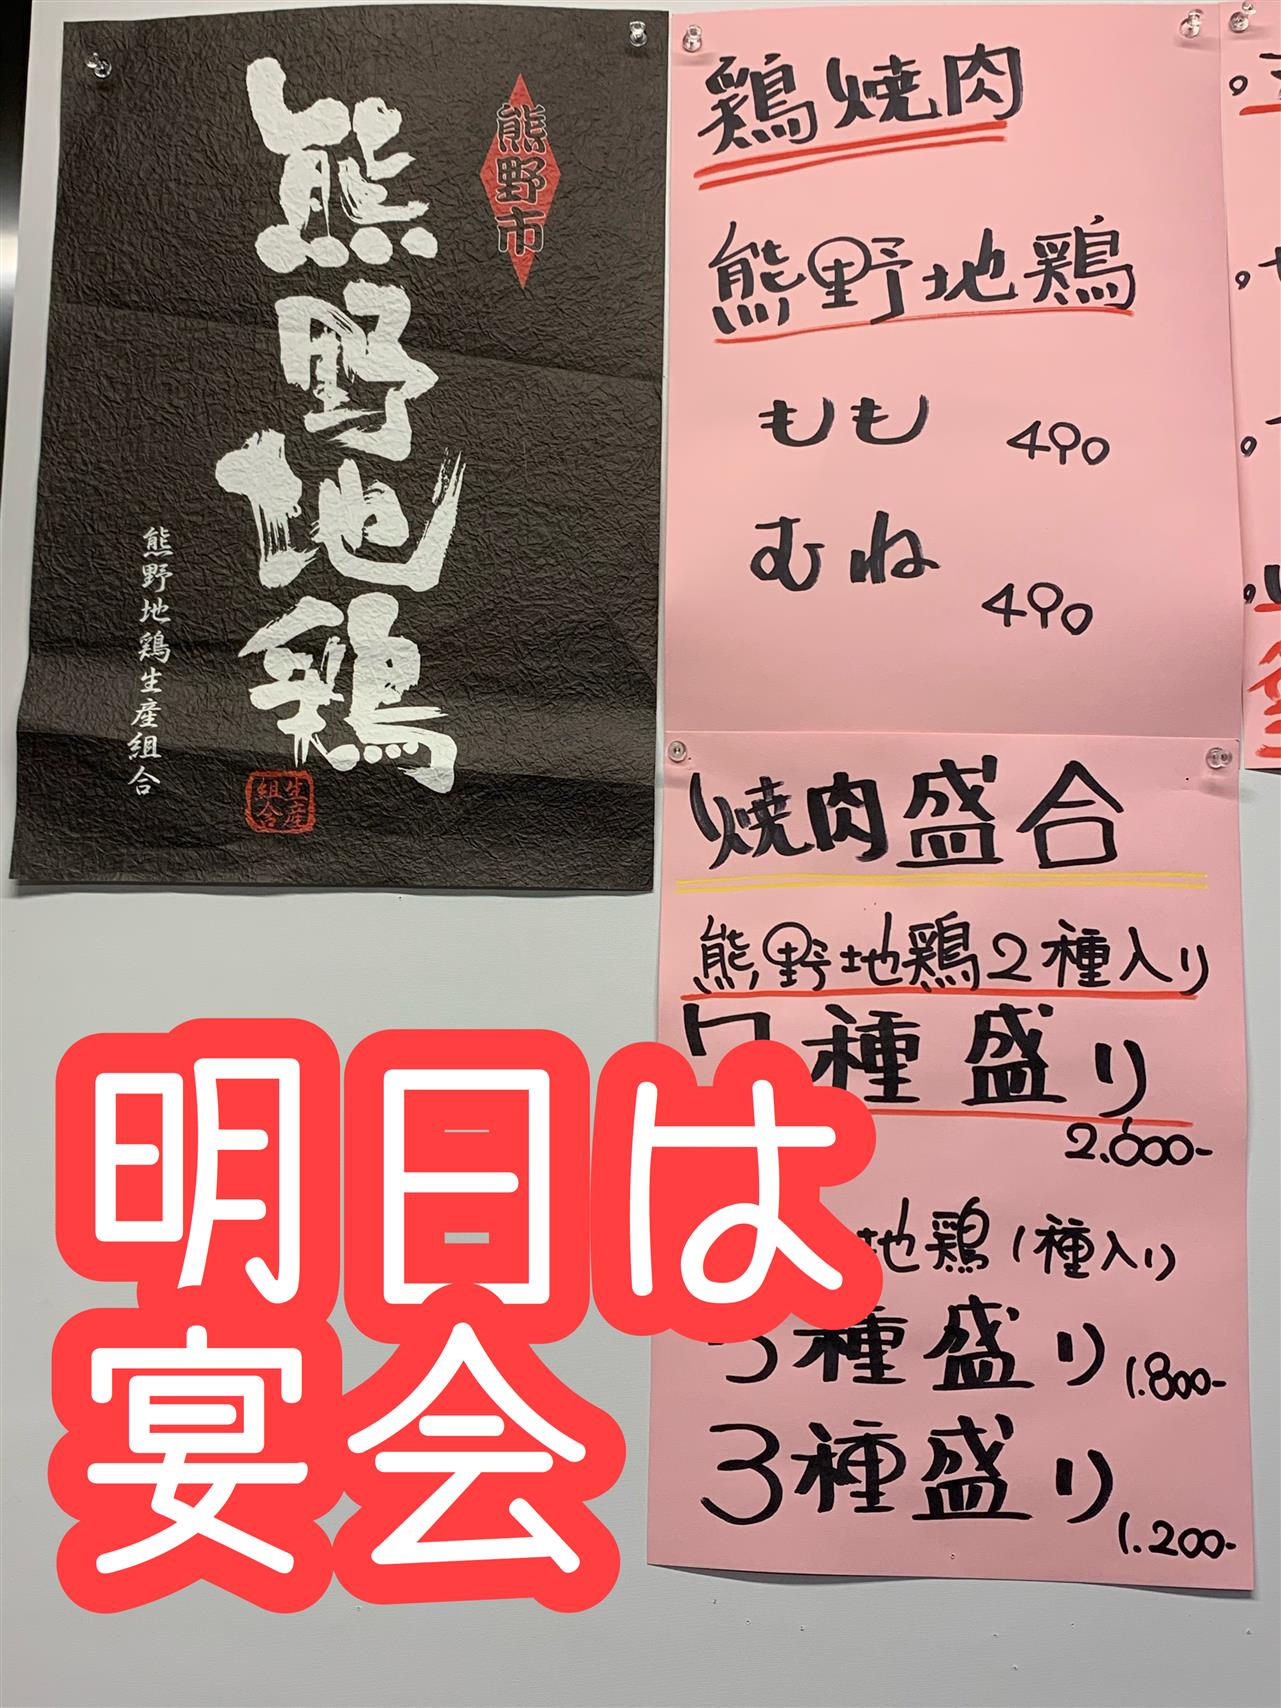 熊野市
熊野地鶏
熊野地鶏生産組合
生産
組合
鶏焼肉
熊野地鶏
もも 490
むね 490
焼肉盛合
熊野地鶏2種入り
7種盛り
2.600-
地鶏1種入り
種盛り 1.800-
3種盛り
1.200-
明日は
宴会